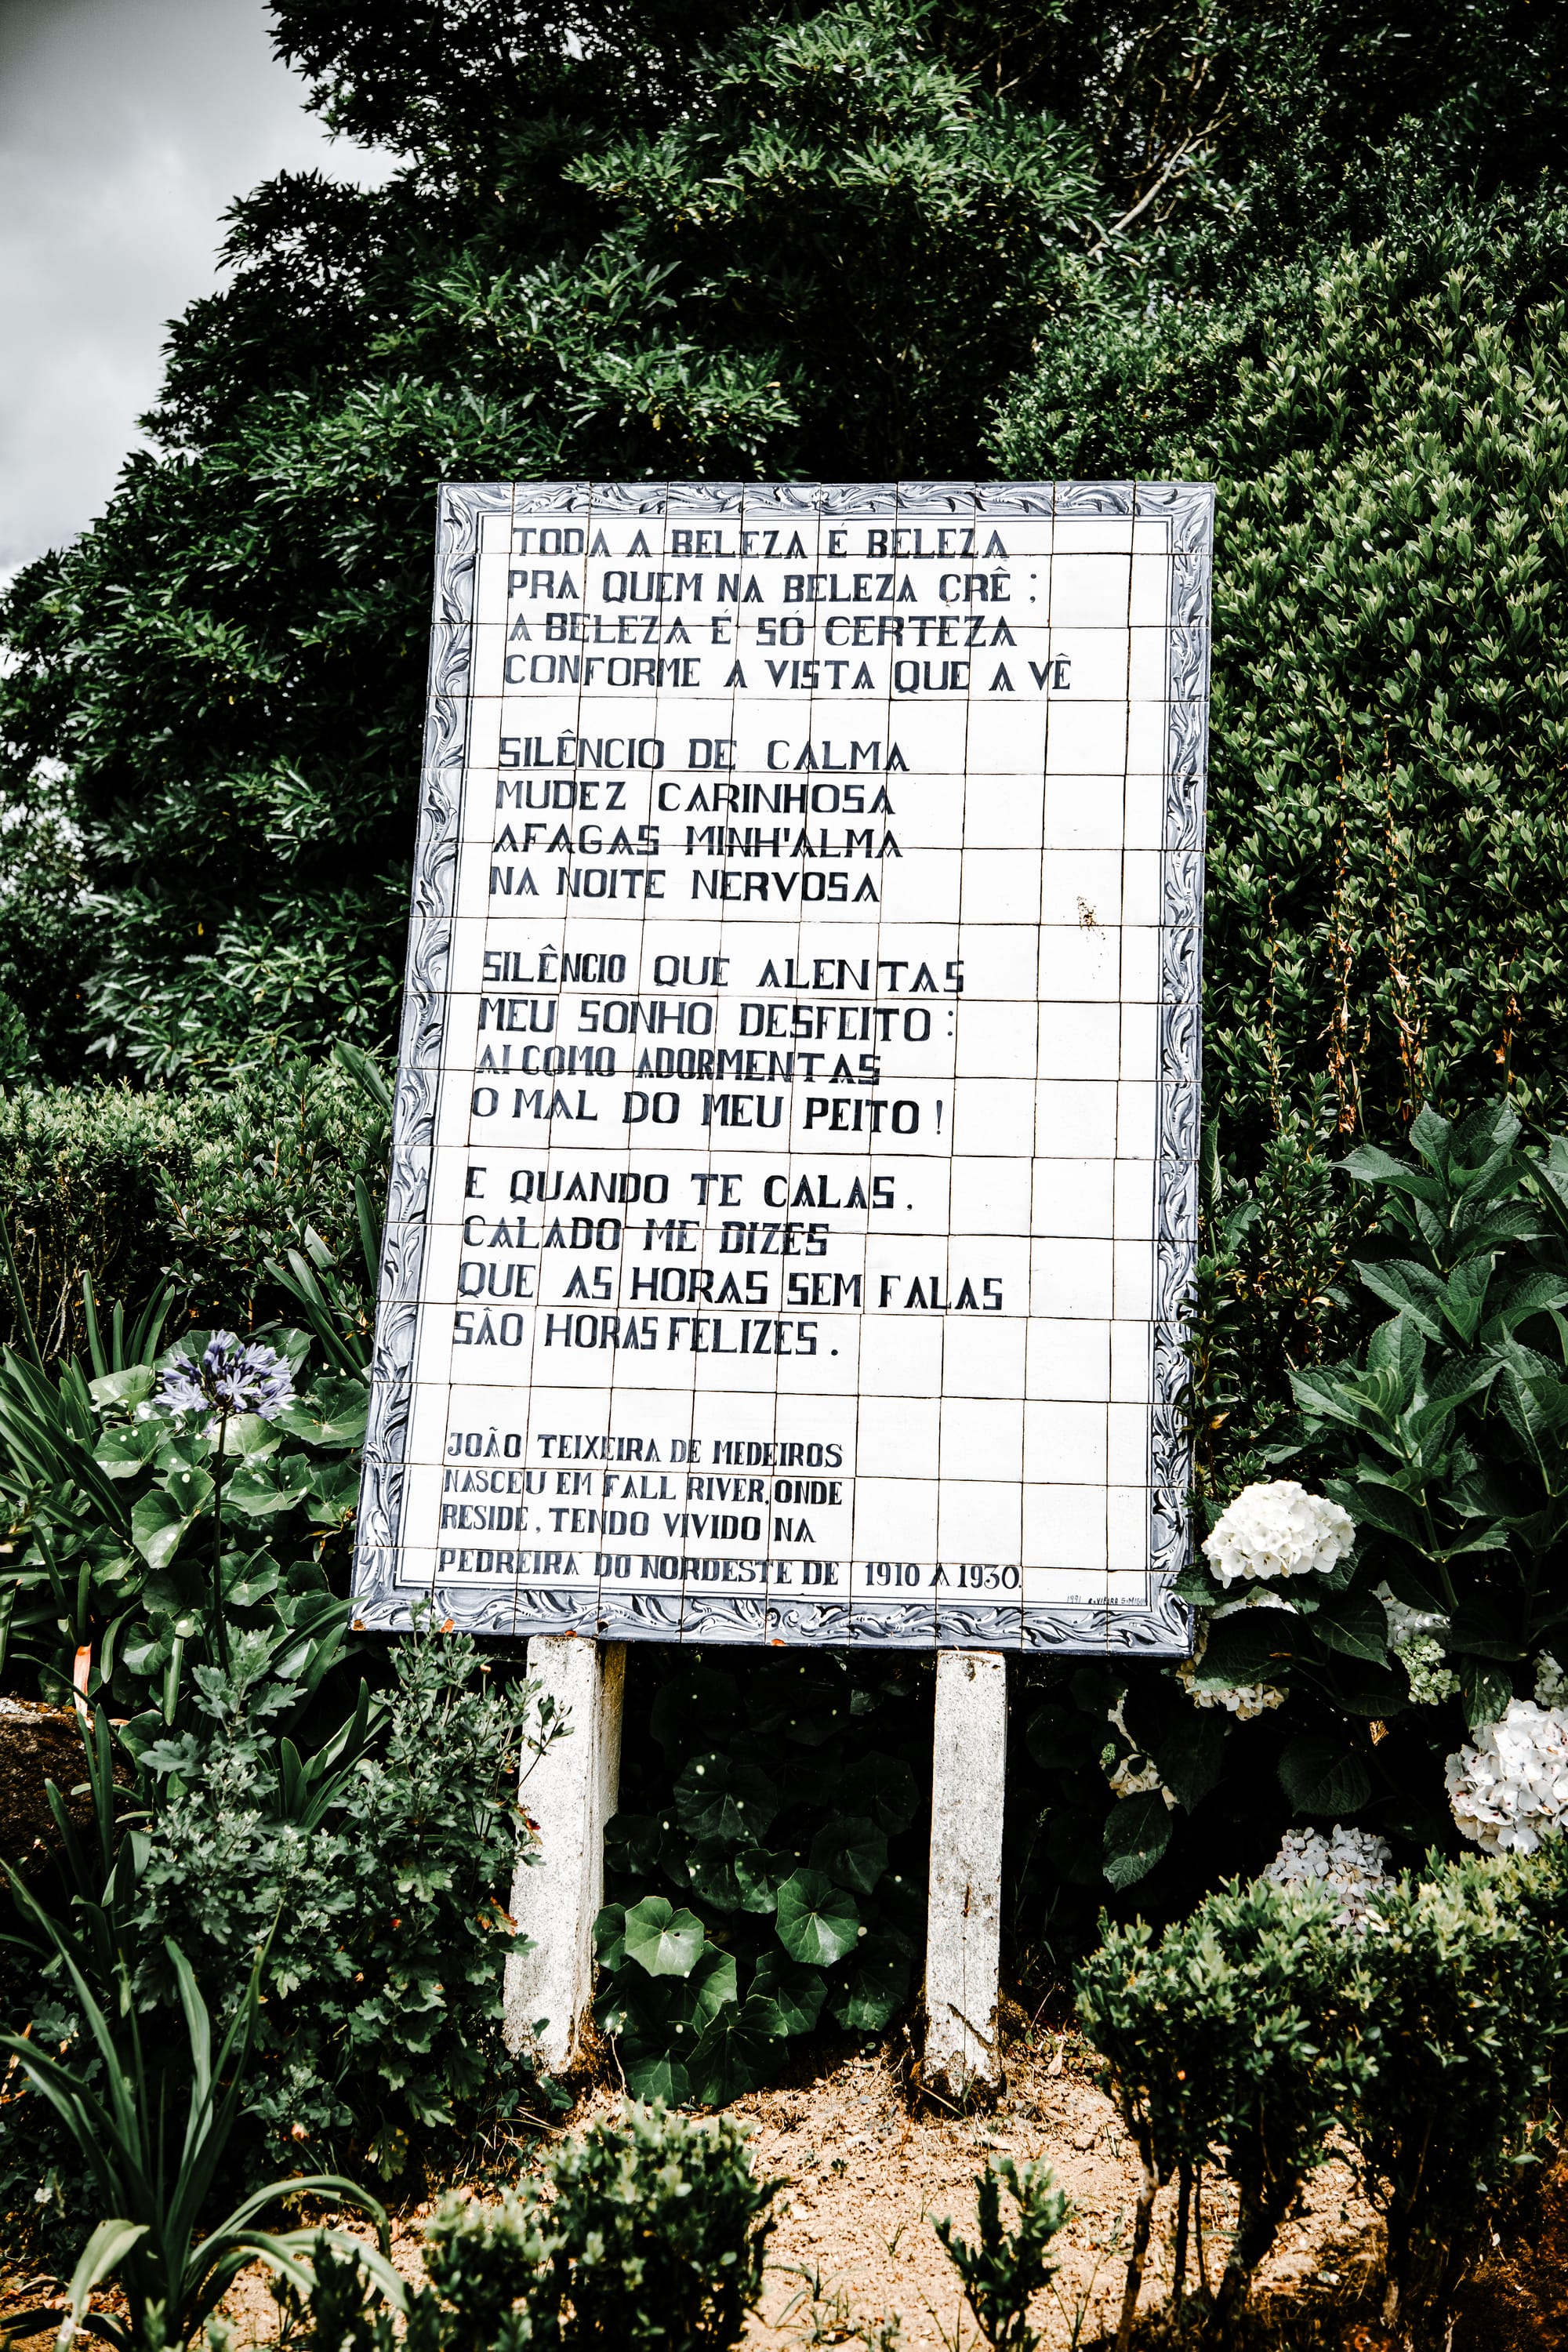 TODA A BELEZA É BELEZA
PRA QUEM NA BELEZA CRÊ :
A BELEZA É SÓ CERTEZA
CONFORME A VISTA QUE A VÊ
SILÊNCIO DE CALMA
MUDEZ CARINHOSA
AFAGAS MINH'ALMA
NA NOITE NERVOSA
SILÊNCIO QUE ALENTAS
MEU SONHO DESFEITO :
AI COMO ADORMENTAS
O MAL DO MEU PEITO !
E QUANDO TE CALAS .
CALADO ME DIZES
QUE AS HORAS SEM FALAS
SÂO HORAS FELIZES .
JOÃO TEIXEIRA DE MEDEIROS
NASCEU EM FALL RIVER, ONDE
RESIDE , TENDO VIVIDO NA
PEDREIRA DO NORDESTE DE 1910 A 1930.
1991